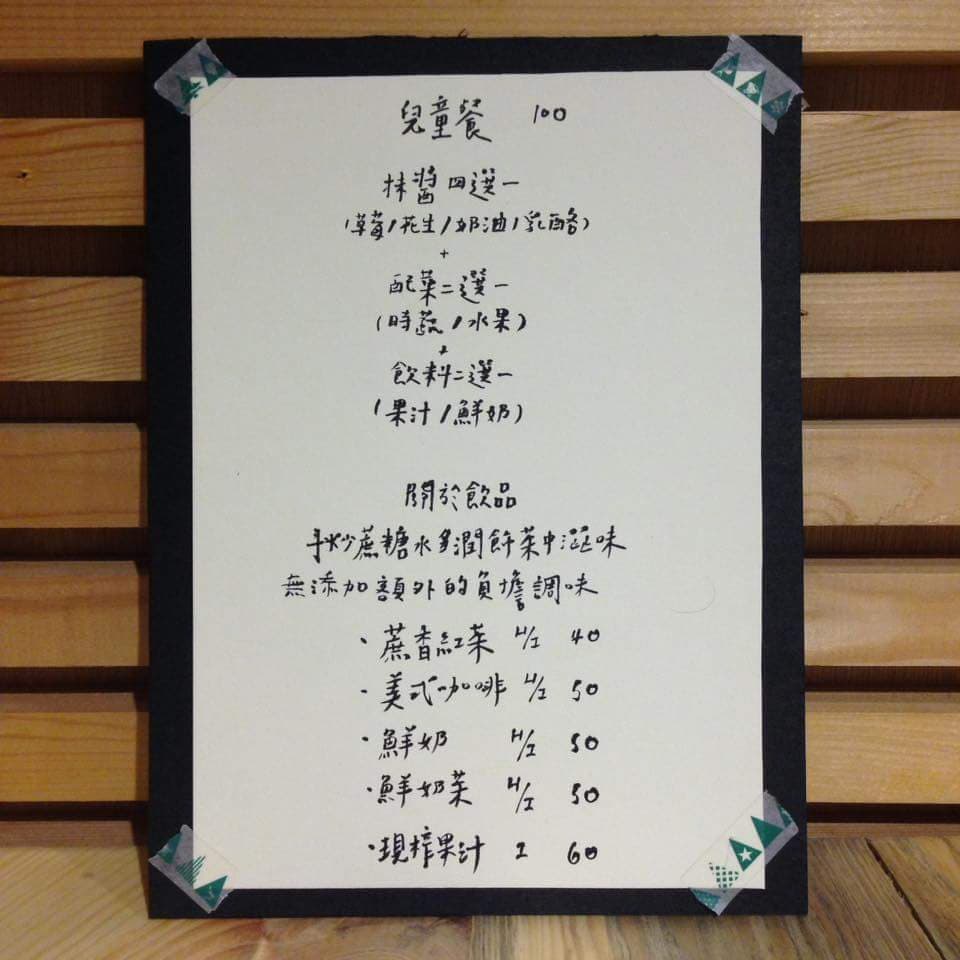 兒童餐 100
抹醬四選一
(草莓/花生/奶油/乳酪)
+
配菜二選一
(時蔬/水果)
+
飲料二選一
(果汁/鮮奶)
關於飲品
手炒蔗糖水多潤飲茶中澀味
無添加額外的負擔調味
・蔗香紅茶 H/I 40
・美式咖啡 H/I 50
・鮮奶 H/I 50
・鮮奶茶 H/I 50
・現榨果汁 I 60